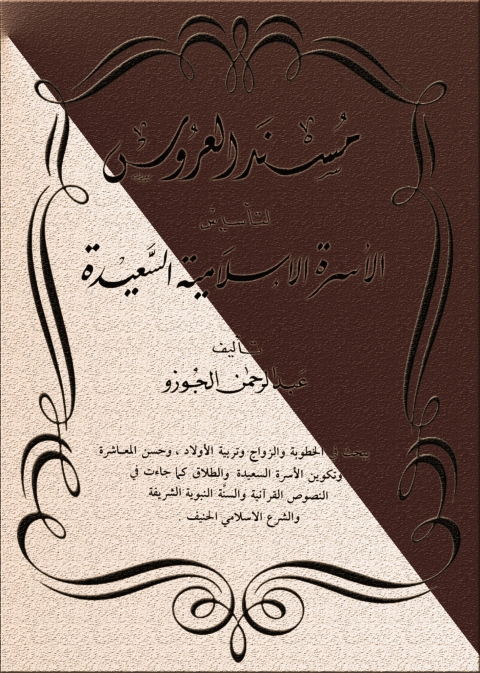 مُسنَد العروس
لتأسيس
الأسرة الإسلامية السَّعيدة
تأليف
عبد الرحمٰن الجُوزو
يبحث في الخطوبة والزواج وتربية الأولاد ، وحسن المعاشرة
وتكوين الأسرة السعيدة والطلاق كما جاءت في
النصوص القرآنية والسنّة النبوية الشريفة
والشرع الاسلامي الحنيف .